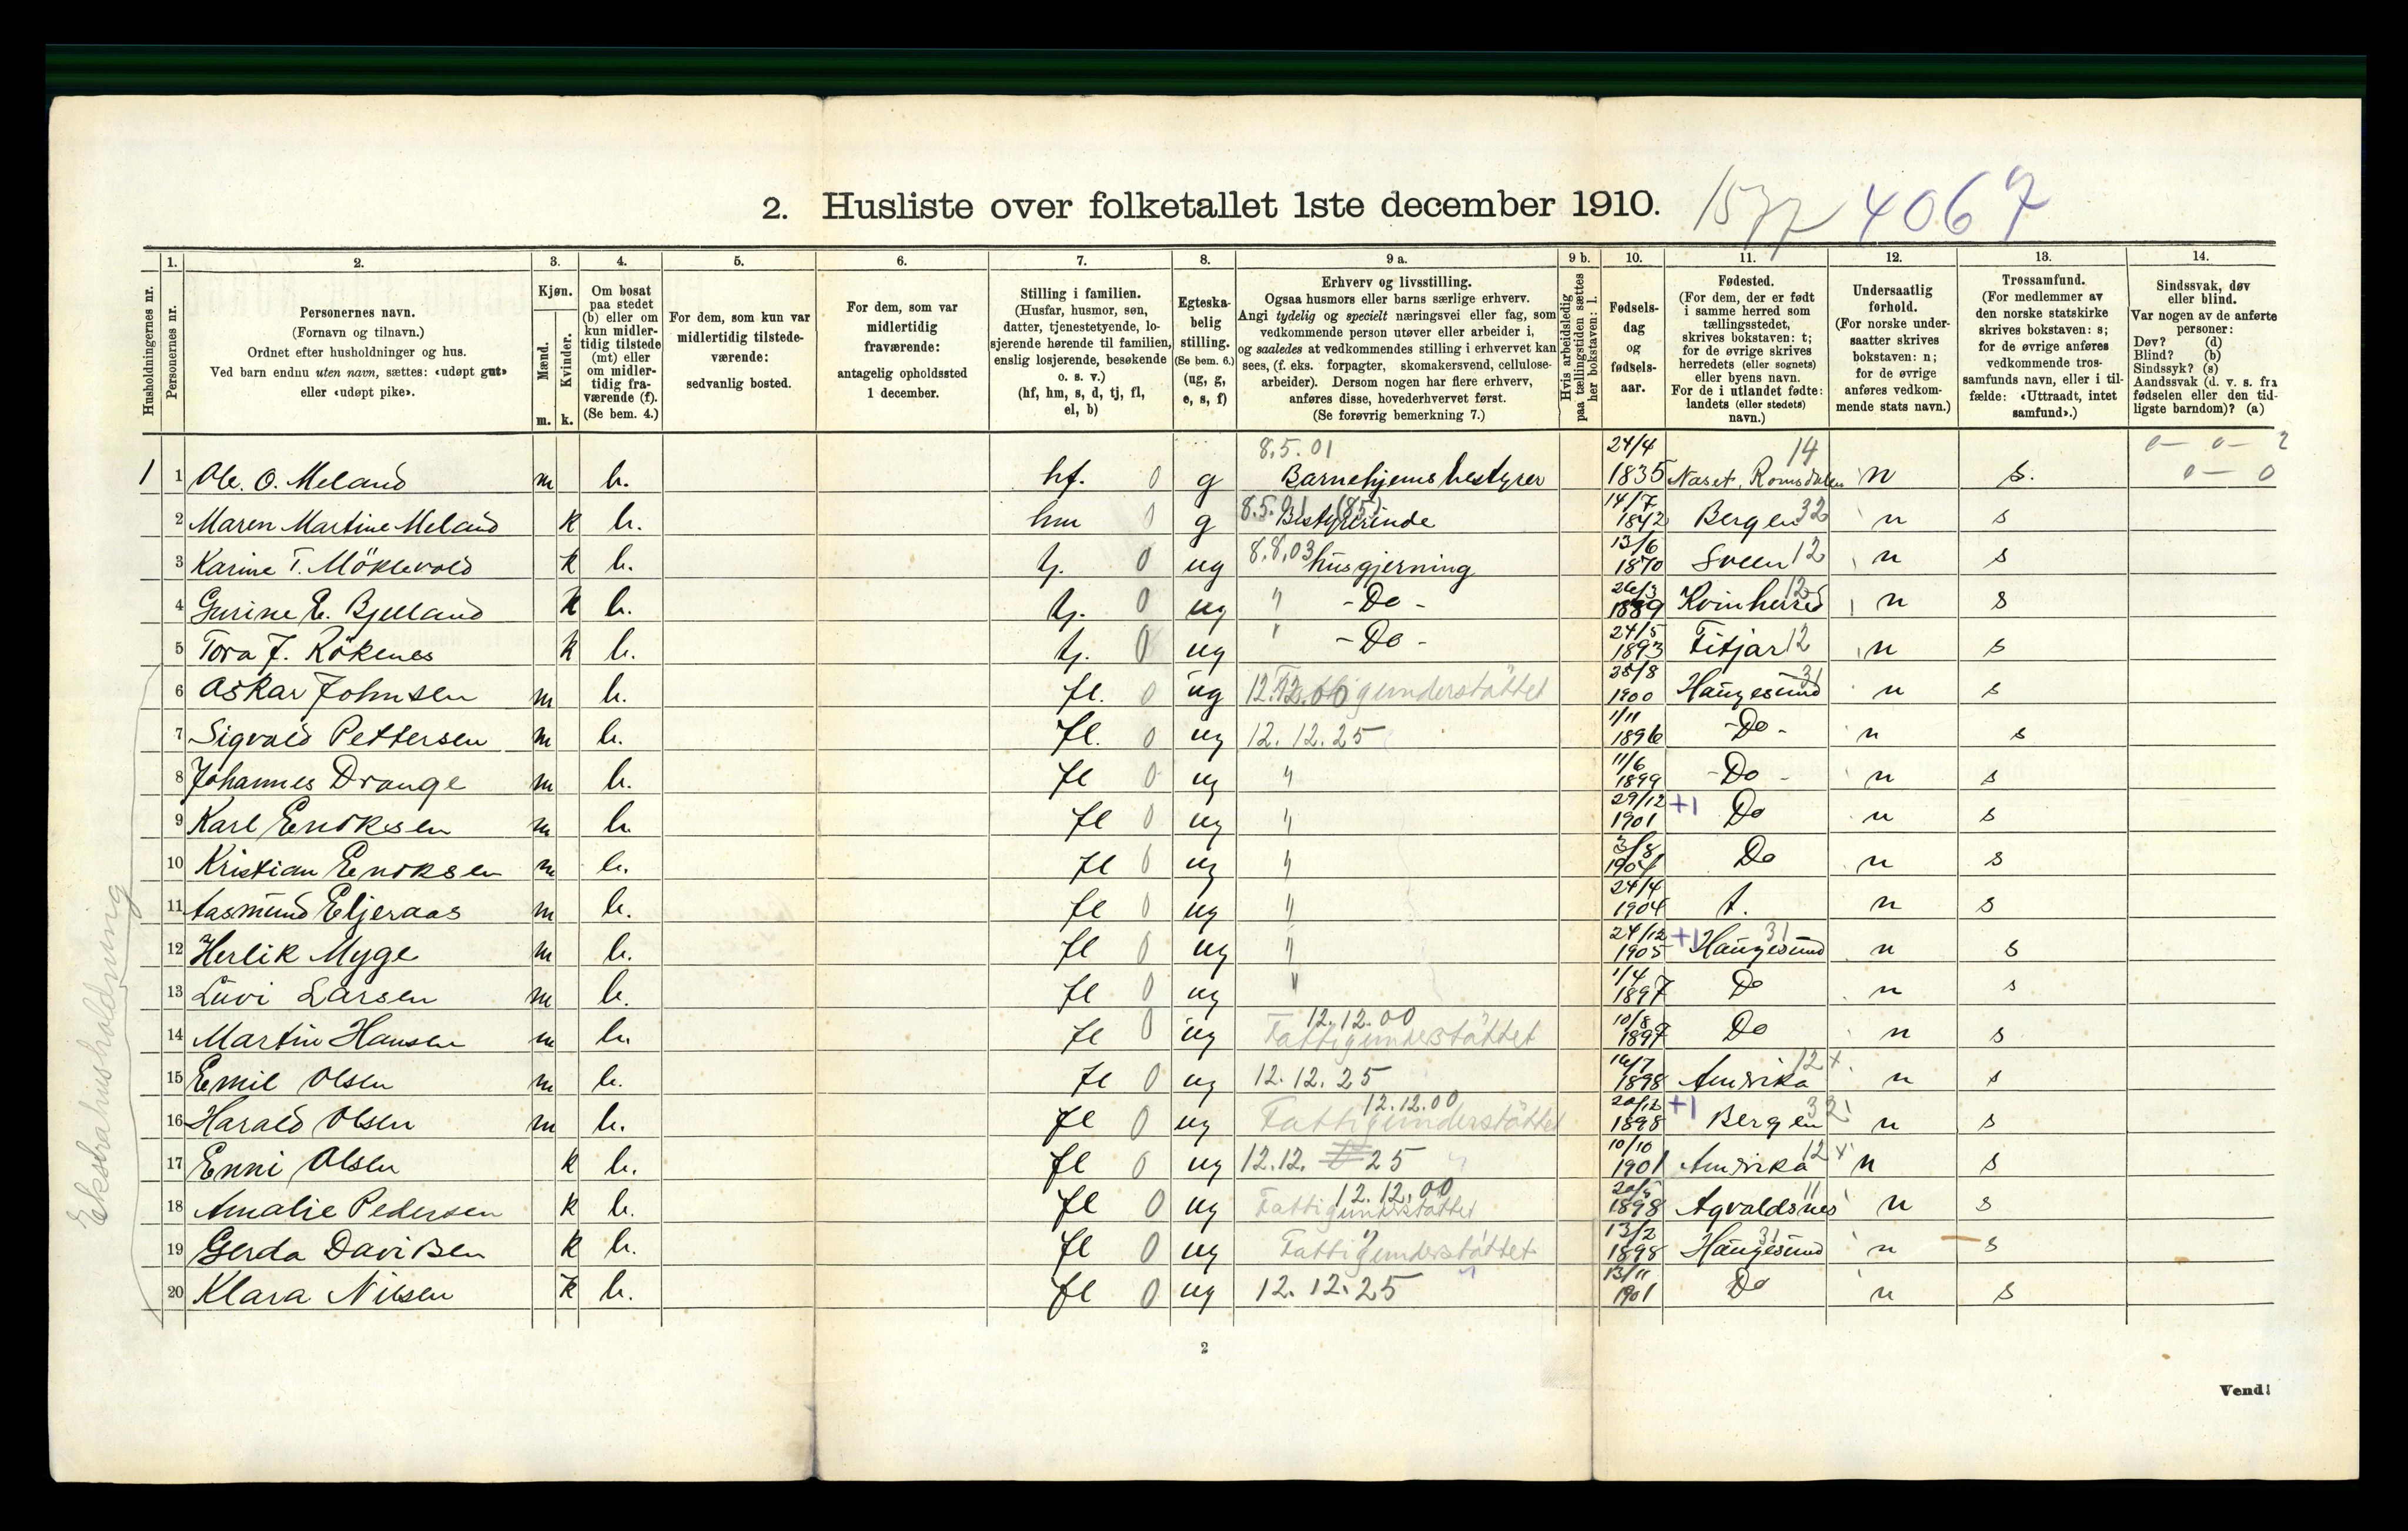 1577 4067
2. Husliste over folketallet 1ste december 1910.
Husholdningernes nr.
1. Personernes nr.
2. Personernes navn.
(Fornavn og tilnavn.)
Ordnet efter husholdninger og hus.
Ved barn endnu uten navn, sættes: «udøpt gut»
eller «udøpt pike».
3. Kjøn.
Mænd. Kvinder.
m. k.
4. Om bosat
paa stedet
(b) eller om
kun midler-
tidig tilstede
(mt) eller
om midler-
tidig fra-
værende (f).
(Se bem. 4.)
5. For dem, som kun var
midlertidig tilstede-
værende:
sedvanlig bosted.
6. For dem, som var
midlertidig
fraværende:
antagelig opholdssted
1 december.
7. Stilling i familien.
(Husfar, husmor, søn,
datter, tjenestetyende, lo-
sjerende hørende til familien,
enslig losjerende, besøkende
o. s. v.)
(hf, hm, s, d, tj, fl,
el, b)
8. Egteska-
belig
stilling.
(Se bem. 6.)
(ug, g,
e, s, f)
9 a. Erhverv og livsstilling.
Ogsaa husmors eller barns særlige erhverv.
Angi tydelig og specielt næringsvei eller fag, som
vedkommende person utøver eller arbeider i,
og saaledes at vedkommendes stilling i erhvervet kan
sees, (f. eks. forpagter, skomakersvend, cellulose-
arbeider). Dersom nogen har flere erhverv,
anføres disse, hovederhvervet først.
(Se forøvrig bemerkning 7.)
9 b. Hvis arbeidsledig
paa tællingstiden sættes
her bokstaven: l.
10. Fødsels-
dag
og
fødsels-
aar.
11. Fødested.
(For dem, der er født
i samme herred som
tællingsstedet,
skrives bokstaven: t;
for de øvrige skrives
herredets (eller sognets)
eller byens navn.
For de i utlandet fødte:
landets (eller stedets)
navn.)
12. Undersaatlig
forhold.
(For norske under-
saatter skrives
bokstaven: n;
for de øvrige
anføres vedkom-
mende stats navn.)
13. Trossamfund.
(For medlemmer av
den norske statskirke
skrives bokstaven: s;
for de øvrige anføres
vedkommende tros-
samfunds navn, eller i til-
fælde: «Uttraadt, intet
samfund».)
14. Sindssvak, døv
eller blind.
Var nogen av de anførte
personer:
Døv? (d)
Blind? (b)
Sindssyk? (s)
Aandssvak (d. v. s. fra
fødselen eller den tid-
ligste barndom)? (a)
8.5.01 24/4 14 0 – 0 – 2
1 1 Ole. O. Meland m b. hf. 0 g Barnehjems bestyrer 1835 Naset, Romsdalen n s. 0 – 0
2 Maren Martine Meland k b. hm 0 g 8.5.01 (85) Bestyrerinde 14/7 1842 Bergen 32 n s
3 Karine T. Möklevold k b. tj. 0 ug 8.8.03 husgjerning 13/6 1870 Sveen 12 n s
4 Gurine E. Bjelland k b. tj. 0 ug " - Do - 26/3 1889 Kvinherred 12 n s
5 Tora J. Rökenes k b. tj. 0 ug " - Do - 24/5 1893 Fitjar 12 n s
6 Askar Johnsen m b. fl. 0 ug 12.12.00 Fattigunderstöttet 25/8 1900 Haugesund 31 n s
7 Sigvald Pettersen m b. fl. 0 ug 12.12.25 1/11 1896 - Do - n s
8 Johannes Drange m b. fl 0 ug " 11/6 1899 - Do - n s
9 Karl Enoksen m b. fl 0 ug " 29/12 1901 +1 Do n s
10 Kristian Enoksen m b. fl 0 ug " 3/8 1904 Do n s
11 Aasmund Eljeraas m b. fl 0 ug " 24/4 1904 t. n s
12 Herlik Myge m b. fl 0 ug " 24/12 1905 +1 Haugesund 31 n s
13 Luvi Larsen m b. fl 0 ug " 1/4 1897 Do n s
14 Martin Hansen m b. fl 0 ug 12.12.00 Fattigunderstöttet 10/8 1897 Do n s
15 Emil Olsen m b. fl 0 ug 12.12.25 16/7 1898 Amerika 12 + n s
16 Harald Olsen m b. fl 0 ug 12.12.00 Fattigunderstöttet 20/12 1898 +1 Bergen 32 n s
17 Enni Olsen k b. fl 0 ug 12.12. 25 10/10 1901 Amerika 12 + n s
18 Amalie Pedersen k b. fl 0 ug 12.12.00 Fattigunderstöttet 1898 Agvaldsnes 11 n s
19 Gerda Davidsen k b. fl 0 ug " Fattigunderstöttet 13/2 1898 Haugesund 31 n s
20 Klara Nilsen k b. fl 0 ug 12.12.25 13/11 1901 Do n s
Ekstrahusholdning
2
Vend!